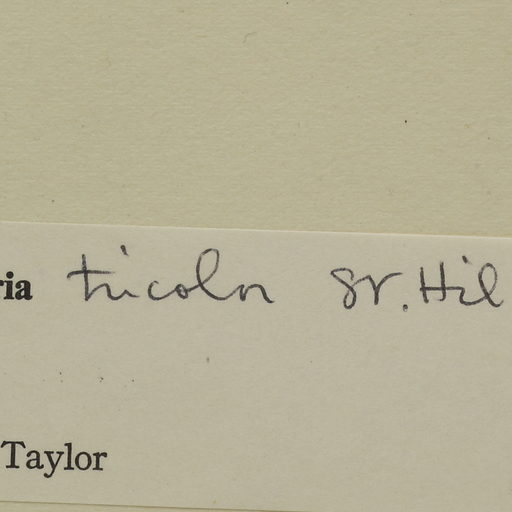 ria tricolor St. Hil
Taylor